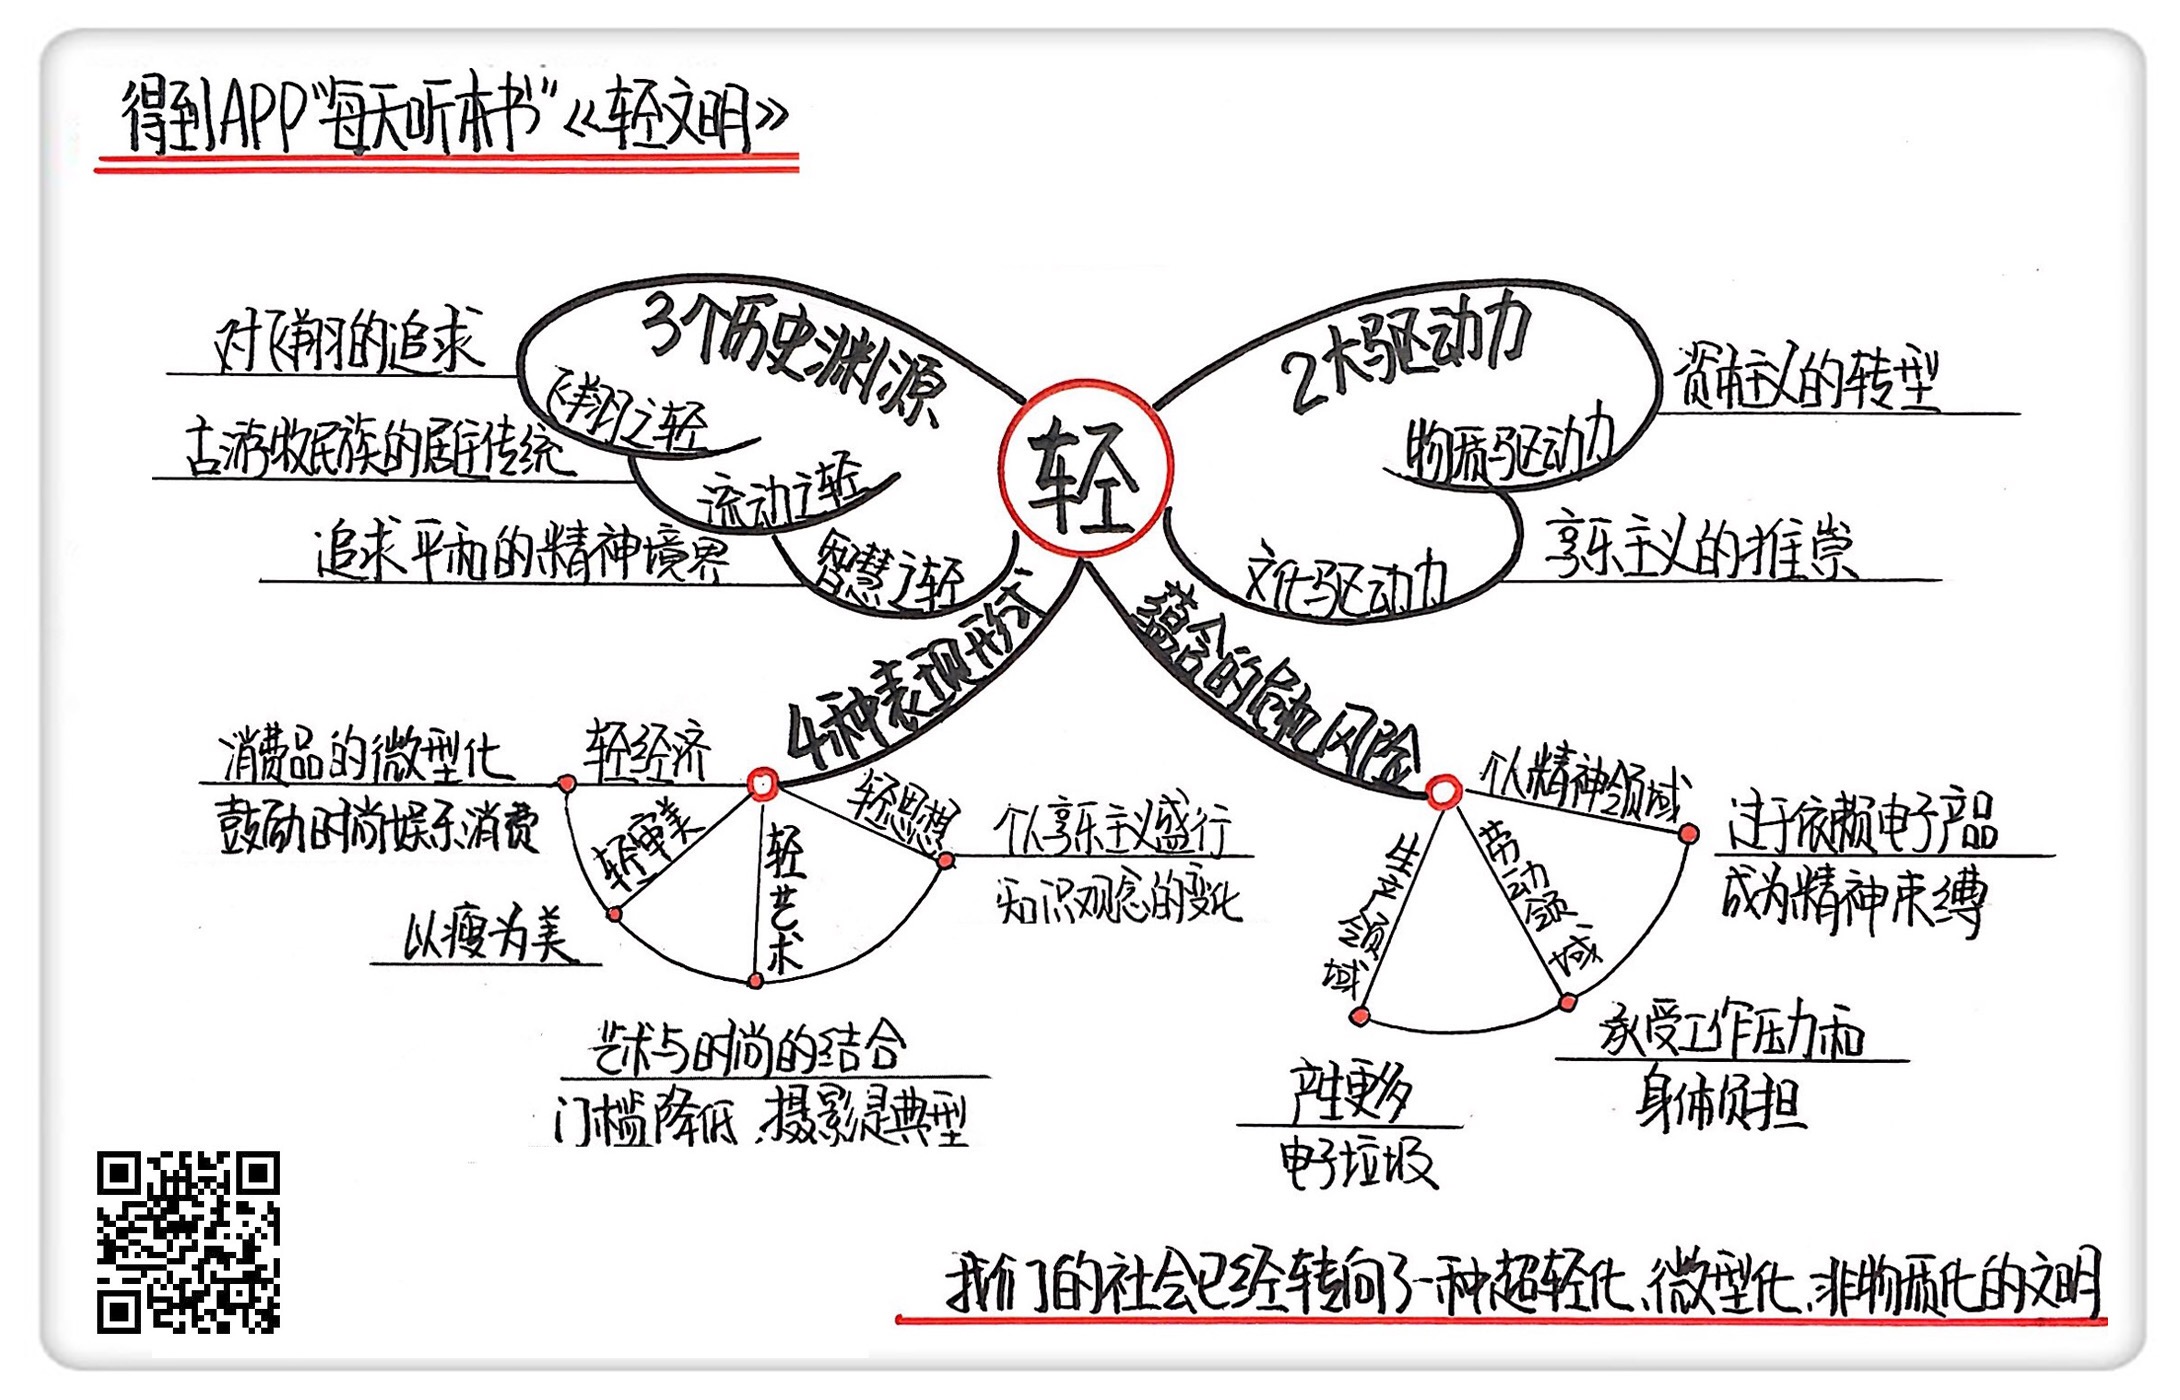 得到APP“每天听本书”《轻文明》
轻
3个历史渊源
飞翔之轻
对飞翔的追求
流动之轻
古游牧民族的居住传统
智慧之轻
追求平和的精神境界
2大驱动力
物质驱动力
资本主义的转型
文化驱动力
享乐主义的推崇
4种表现形式
轻经济
消费品的微型化
鼓励时尚娱乐消费
轻审美
以瘦为美
轻艺术
艺术与时尚的结合
门槛降低、摄影是典型
轻思想
个人享乐主义盛行
知识观念的变化
蕴含的危机风险
个人精神领域
过于依赖电子产品
成为精神束缚
劳动领域
承受工作压力和
身体负担
生产领域
产生更多
电子垃圾
我们的社会已经转向了一种超轻化、微型化、非物质化的文明